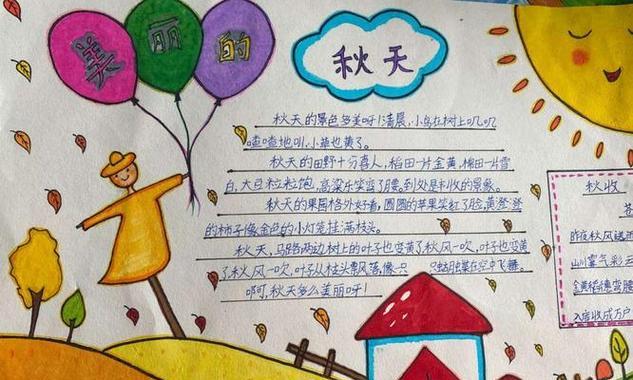 美丽的
秋天
秋天的景色多美呀!清晨,小鸟在树上叽叽
喳喳地叫,小草也黄了。
秋天的田野十分喜人,稻田一片金黄,棉田一片雪
白,大豆粒粒饱,高粱乐笑弯了腰。到处是丰收的景象。
秋天的果园格外好看,圆圆的苹果笑红了脸,黄澄澄
的柿子像金色的小灯笼挂满枝头。
秋天,马路两边树上的叶子也变黄了秋风一吹,叶子也变黄
了秋风一吹,叶子从枝头飘落,像一只 只蝴蝶在空中飞舞。
啊呵,秋天多么美丽呀!
秋收
昨夜秋风
山川雾气彩云
金黄稻穗弯腰
入库收成万户